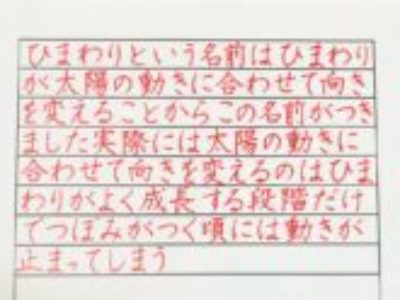 ひまわりという名前はひまわり
が太陽の動きに合わせて向き
を変えることからこの名前がつき
ました実際には太陽の動きに
合わせて向きを変えるのはひま
わりがよく成長する段階だけ
でつぼみがつく頃には動きが
止まってしまう